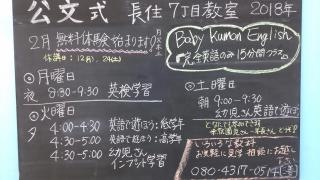 公文式 長住7丁目教室 2018年
2月 無料体験始まります!
休講日: 12(月)、24(土)
Baby Kumon English
完全英語のみ15分間クラス
◎月曜日
夜 8:30-9:30 英検学習
◎火曜日
夕 4:00-4:30 英語で遊ぼう:低学年
4:30-5:00 英語で遊ぼう:高学年
4:30-5:00 幼児さん
インプット学習
◎土曜日
朝 9:00-9:30
幼児さん英語で遊ぼう
いろいろな教科
お気軽に見学 相談にお越し下さい
080-4317-0514